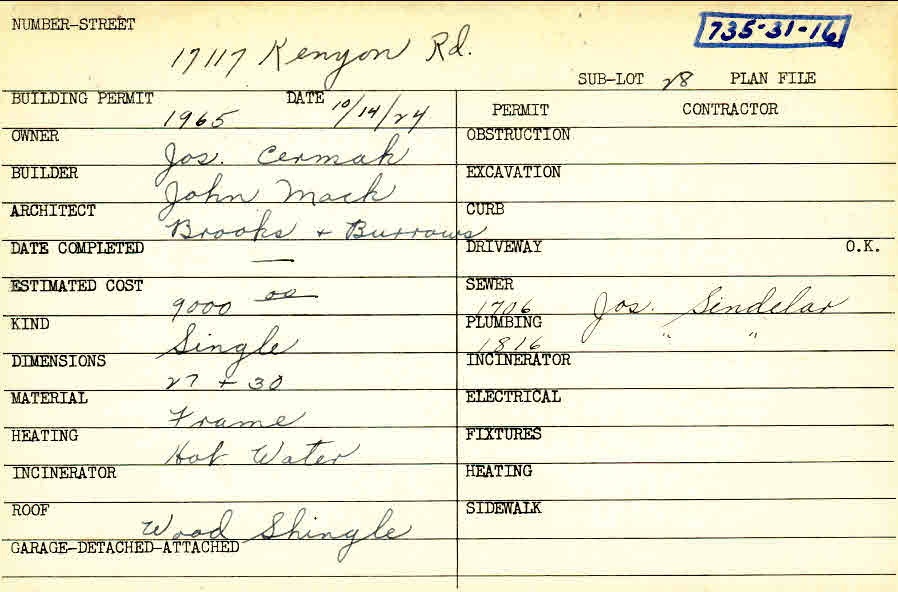 NUMBER-STREET
17117 Kenyon Rd.
735-31-16
SUB-LOT 28 PLAN FILE
BUILDING PERMIT 1965 DATE 10/14/24
PERMIT CONTRACTOR
OWNER Jos. Cermak
OBSTRUCTION
BUILDER John Mack
EXCAVATION
ARCHITECT Brooks + Burrows
CURB
DATE COMPLETED —
DRIVEWAY O.K.
ESTIMATED COST 9000 00
SEWER 1706 Jos. Sindelar
KIND Single
PLUMBING 1816 " "
DIMENSIONS 27 + 30
INCINERATOR
MATERIAL Frame
ELECTRICAL
HEATING Hot Water
FIXTURES
INCINERATOR
HEATING
ROOF Wood Shingle
SIDEWALK
GARAGE-DETACHED-ATTACHED